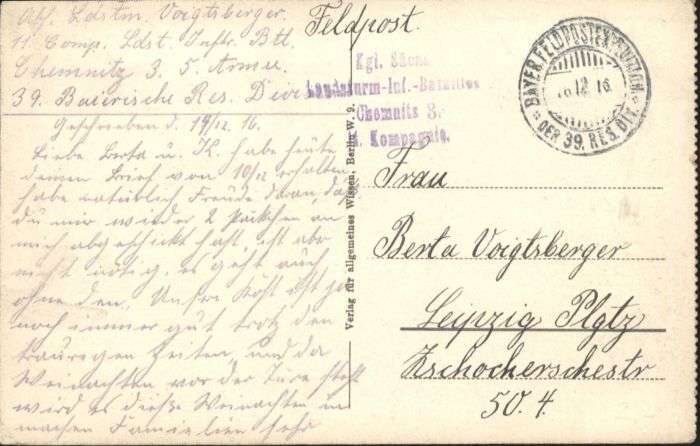 Abs. Ldstm. Voigtsberger.
11 Comp. Ldst. Inftr. Btl.
Chemnitz 3. 5. Armee
39. Baierische Res. Divis
Feldpost.
Kgl. Sächs.
Landsturm-Inf.-Bataillon
Chemnitz 3.
Kompagnie.
BAYER. FELDPOSTEXPEDITION
12 16.
DER 39. RES. DIV.
Geschrieben d. 19/12. 16.
Liebe Berta u. K. habe heute
deinen Brief von 10/12 erhalten
habe natürlich Freude daran, das
du mir wieder 2 Päckchen an
mich abgeschickt hast, ist aber
nicht nötig. es geht auch
ohne den. Unsre Kost ist ja
noch immer gut trotz den
traurigen Zeiten, und da
Weinachten vor der Türe steht
wird es diese Weinachten in
machen Familien sehr
Verlag für allgemeines Wissen, Berlin W. 9.
Frau
Berta Voigtsberger
Leipzig Plgtz
Zschocherschestr
50. 4.